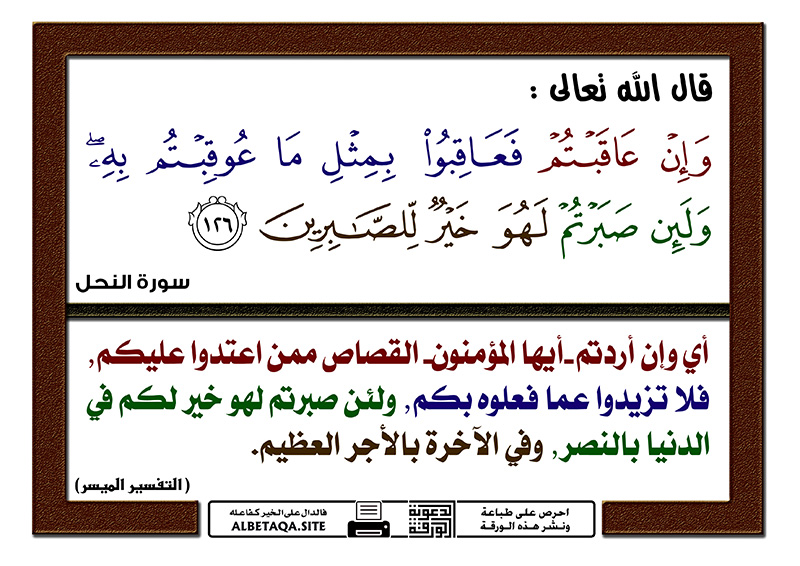 قال الله تعالى :
وَإِنۡ عَاقَبۡتُمۡ فَعَاقِبُواْ بِمِثۡلِ مَا عُوقِبۡتُم بِهِۦۖ
وَلَئِن صَبَرۡتُمۡ لَهُوَ خَيۡرٞ لِّلصَّٰبِرِينَ ١٢٦
سورة النحل
أي وإن أردتم ـ أيها المؤمنون ـ القصاص ممن اعتدوا عليكم,
فلا تزيدوا عما فعلوه بكم, ولئن صبرتم لهو خير لكم في
الدنيا بالنصر, وفي الآخرة بالأجر العظيم.
( التفسير الميسر)
احرص على طباعة
ونشر هذه الورقة
الورقة الدعوية
فالدال على الخير كفاعله
ALBETAQA.SITE